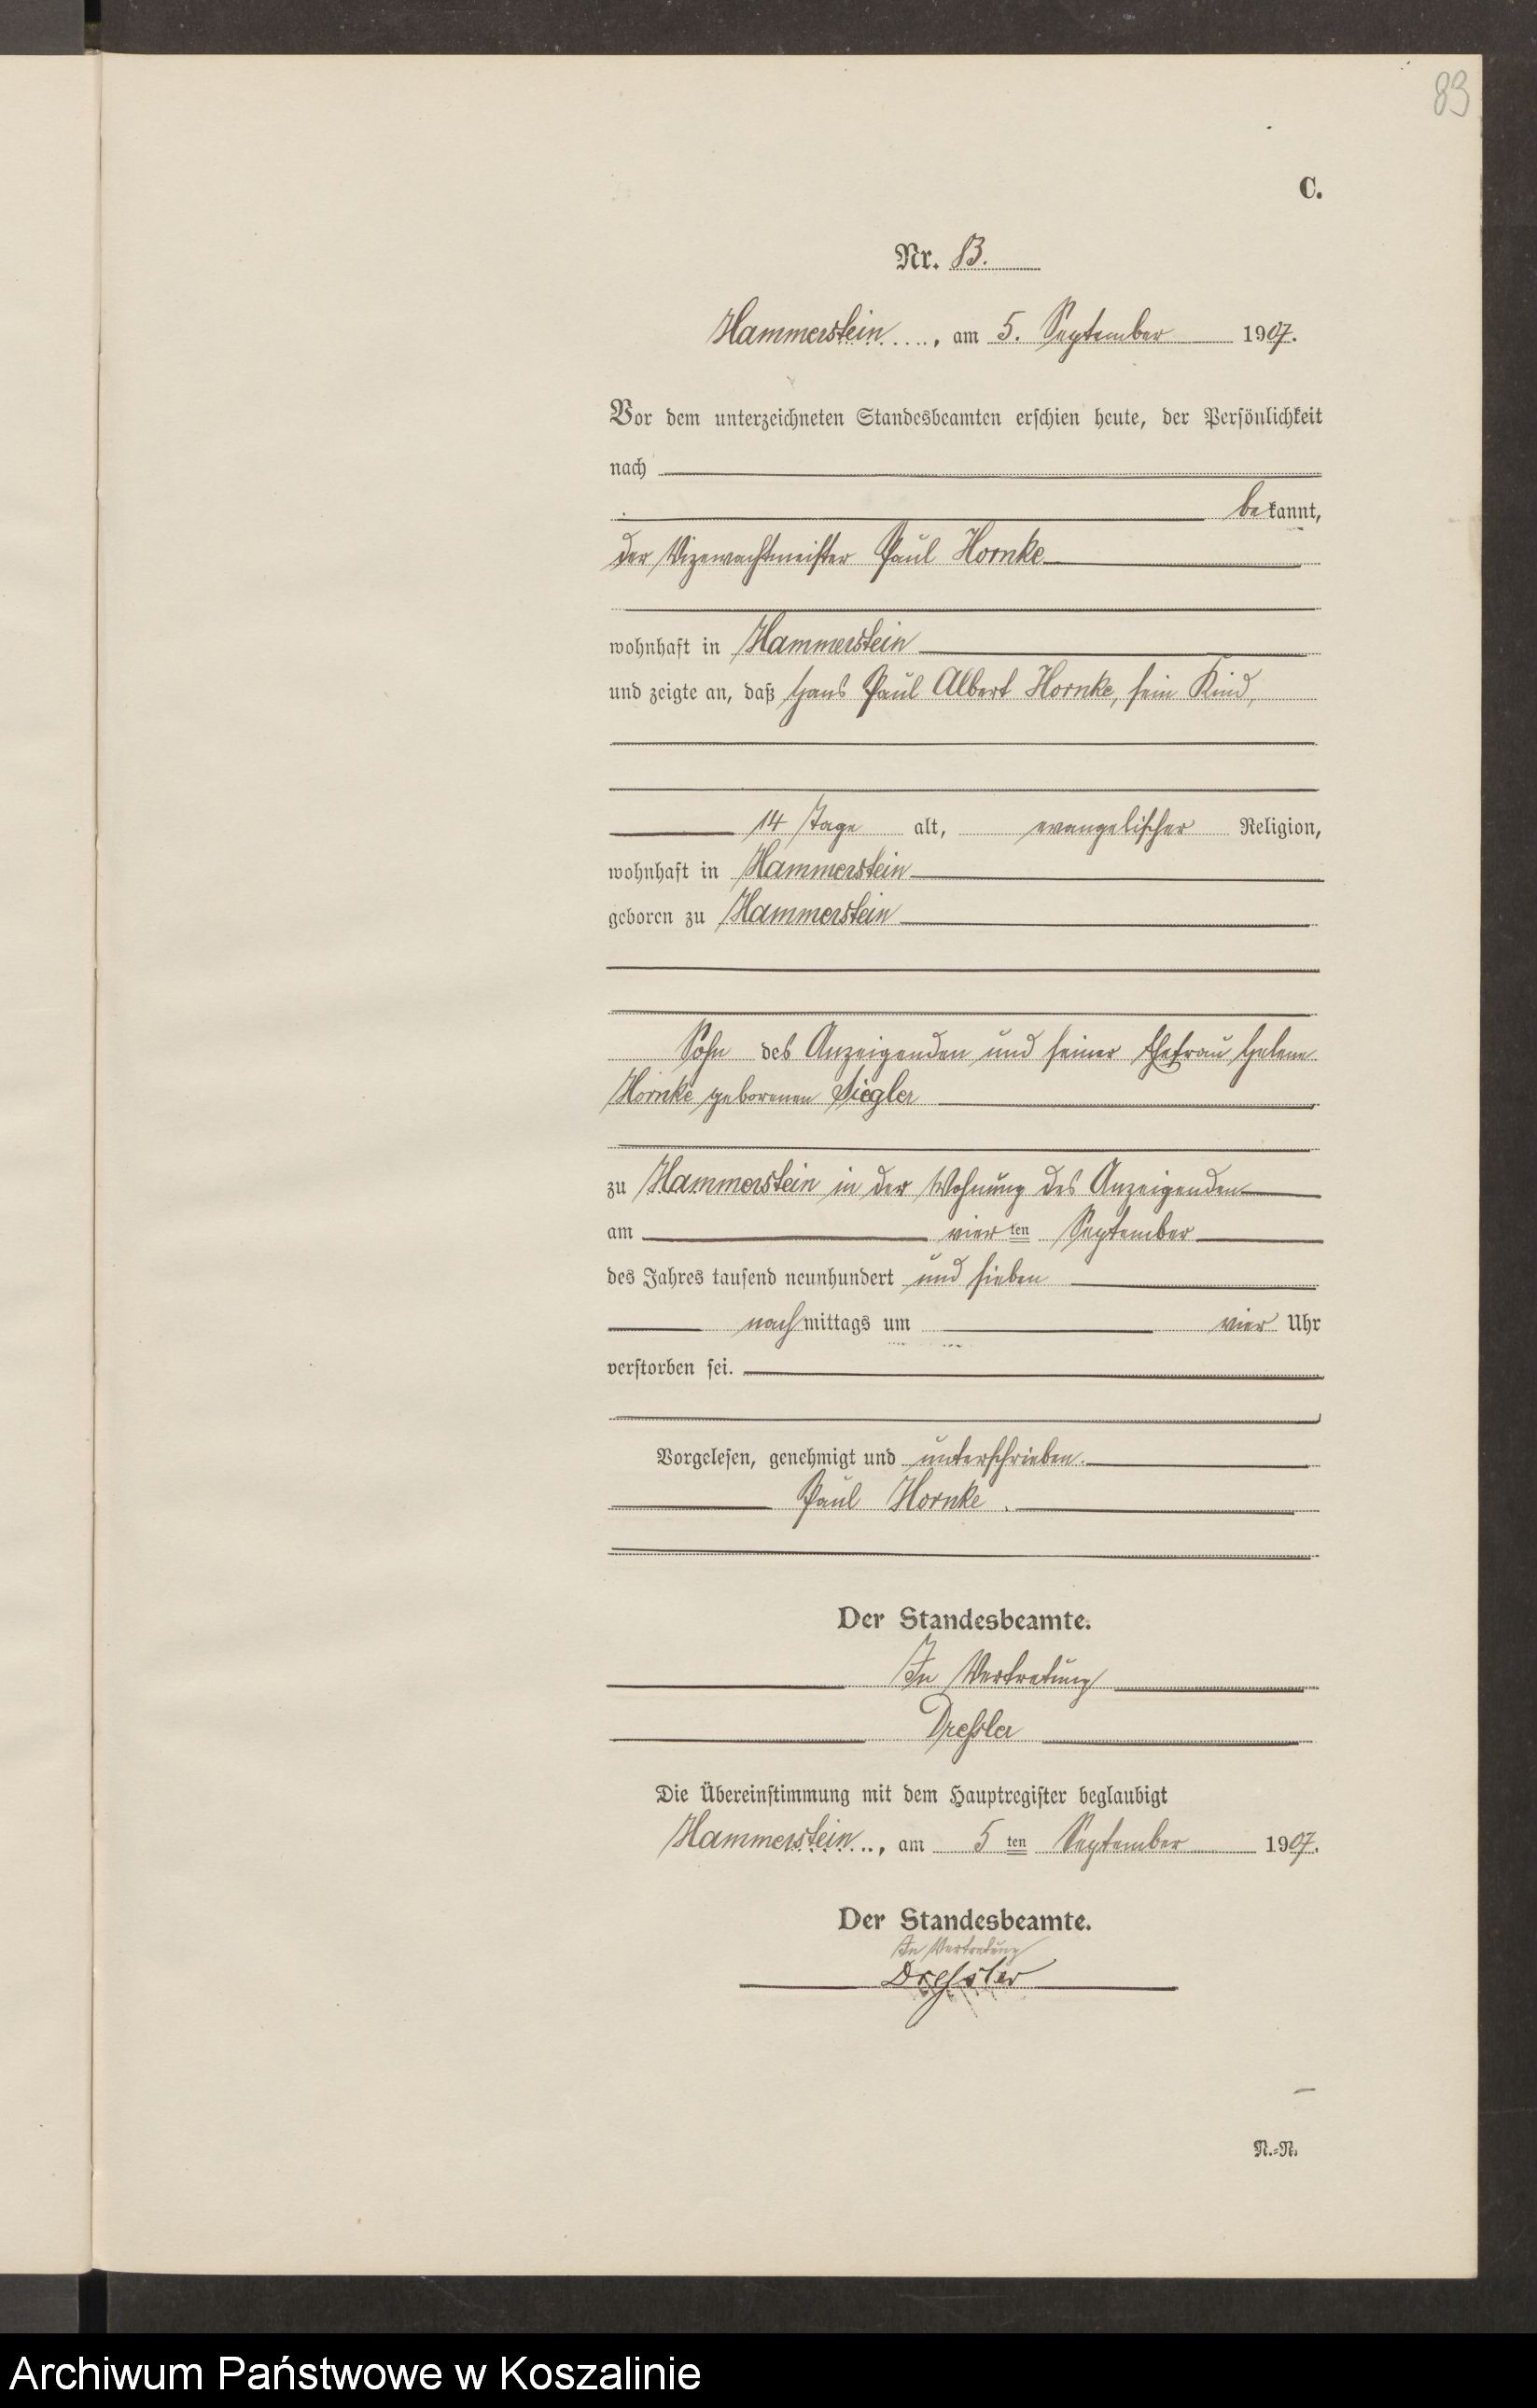 83
C.
Nr. 83.
Hammerstein, am 5. September 1907.
Vor dem unterzeichneten Standesbeamten erschien heute, der Persönlichkeit
nach
bekannt,
der Vizewachtmeister Paul Hornke
wohnhaft in Hammerstein
und zeigte an, daß Hans Paul Albert Hornke, sein Kind,
14 Tage alt, evangelischer Religion,
wohnhaft in Hammerstein
geboren zu Hammerstein
Sohn des Anzeigenden und seiner Ehefrau Helene
Hornke geborenen Siegler
zu Hammerstein in der Wohnung des Anzeigenden
am vier ten September
des Jahres tausend neunhundert und sieben
nachmittags um vier Uhr
verstorben sei.
Vorgelesen, genehmigt und unterschrieben.
Paul Hornke.
Der Standesbeamte.
In Vertretung
Dreßler
Die Übereinstimmung mit dem Hauptregister beglaubigt
Hammerstein, am 5 ten September 1907.
Der Standesbeamte.
In Vertretung
Dreßler
N.=N.
Archiwum Państwowe w Koszalinie